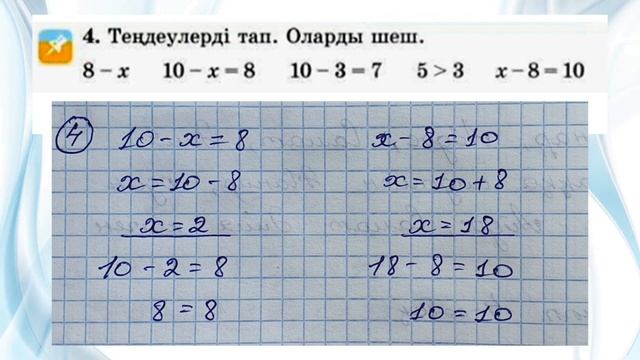 4. Теңдеулерді тап. Оларды шеш.
8 − x 10 − x = 8 10 − 3 = 7 5 > 3 x − 8 = 10
4 10 − x = 8 x − 8 = 10
x = 10 − 8 x = 10 + 8
x = 2 x = 18
10 − 2 = 8 18 − 8 = 10
8 = 8 10 = 10